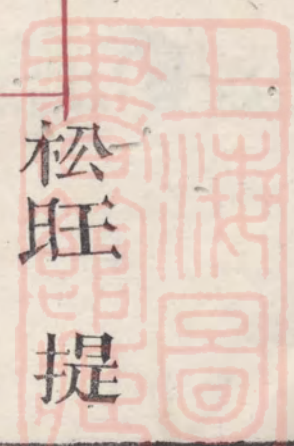 松旺 提
上海圖
書館藏